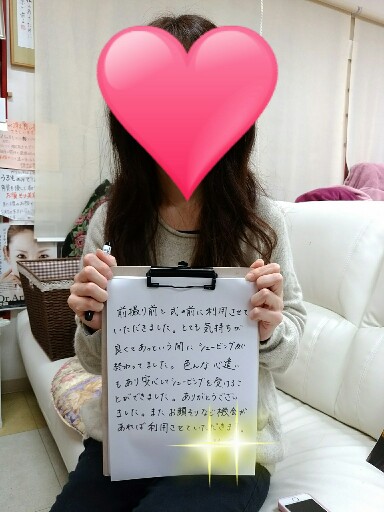 前撮り前と式の前に利用させて
いただきました。とても気持ちが
良くてあっという間にシェービングが
終わってました。色んな心遣い
もあり安心してシェービングを受けるこ
とができました。ありがとうござい
ました。またお顔そりなど機会が
あれば利用させていただきます。